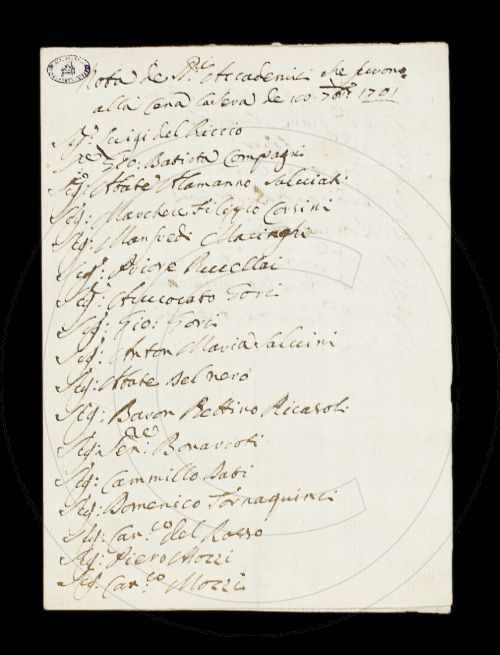 Nota de S.ri Accademici che furono
alla Cena la sera de 10 7bre 1701
Sig: Luigi del Riccio
Sig: Gio: Batista Compagni
Sig: Abate Alamanno Salviati
Sig: Marchese Filippo Corsini
Sig: Manfredi Macinghi
Sig: Priore Rucellai
Sig: Avvocato Fori
Sig: Gio: Fori
Sig: Anton Maria Salvini
Sig: Abate Del nero
Sig: Baron Bettino Ricasoli
Sig: Sen:re Bonaroti
Sig: Cammillo Dati
Sig: Domenico Tornaquinci
Sig: Can:co del Rosso
Sig: Piero Mozzi
Sig: Can:co Mozzi